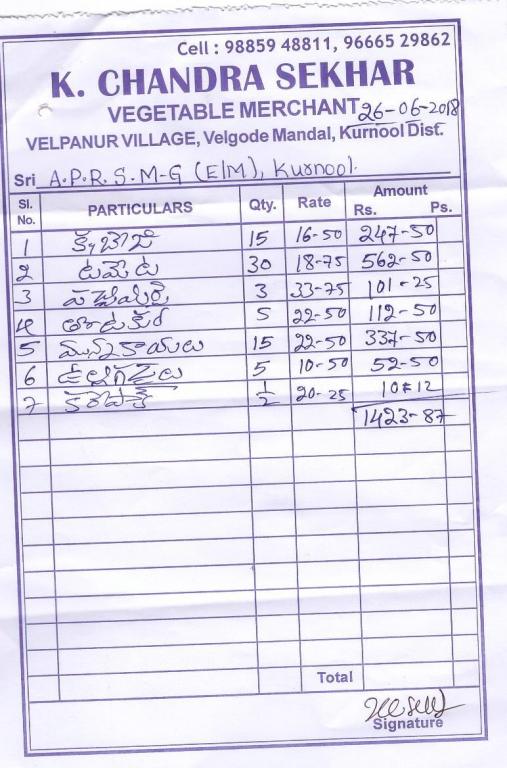 Cell : 98859 48811, 96665 29862
K. CHANDRA SEKHAR
VEGETABLE MERCHANT 26-06-2018
VELPANUR VILLAGE, Velgode Mandal, Kurnool Dist.
Sri A.P.R.S.M-G (E/M), Kurnool.
Sl. No. PARTICULARS Qty. Rate Amount Rs. Ps.
1 15 16-50 247-50
2 టమేట 30 18-75 562-50
3 పచ్చిమిర్చి 3 33-75 101-25
4 5 22-50 112-50
5 మునక్కాయలు 15 22-50 337-50
6 ఉల్లిగడ్డలు 5 10-50 52-50
7 కరేపాక్ 1/2 20-25 10-12
1423-87
Total
Signature